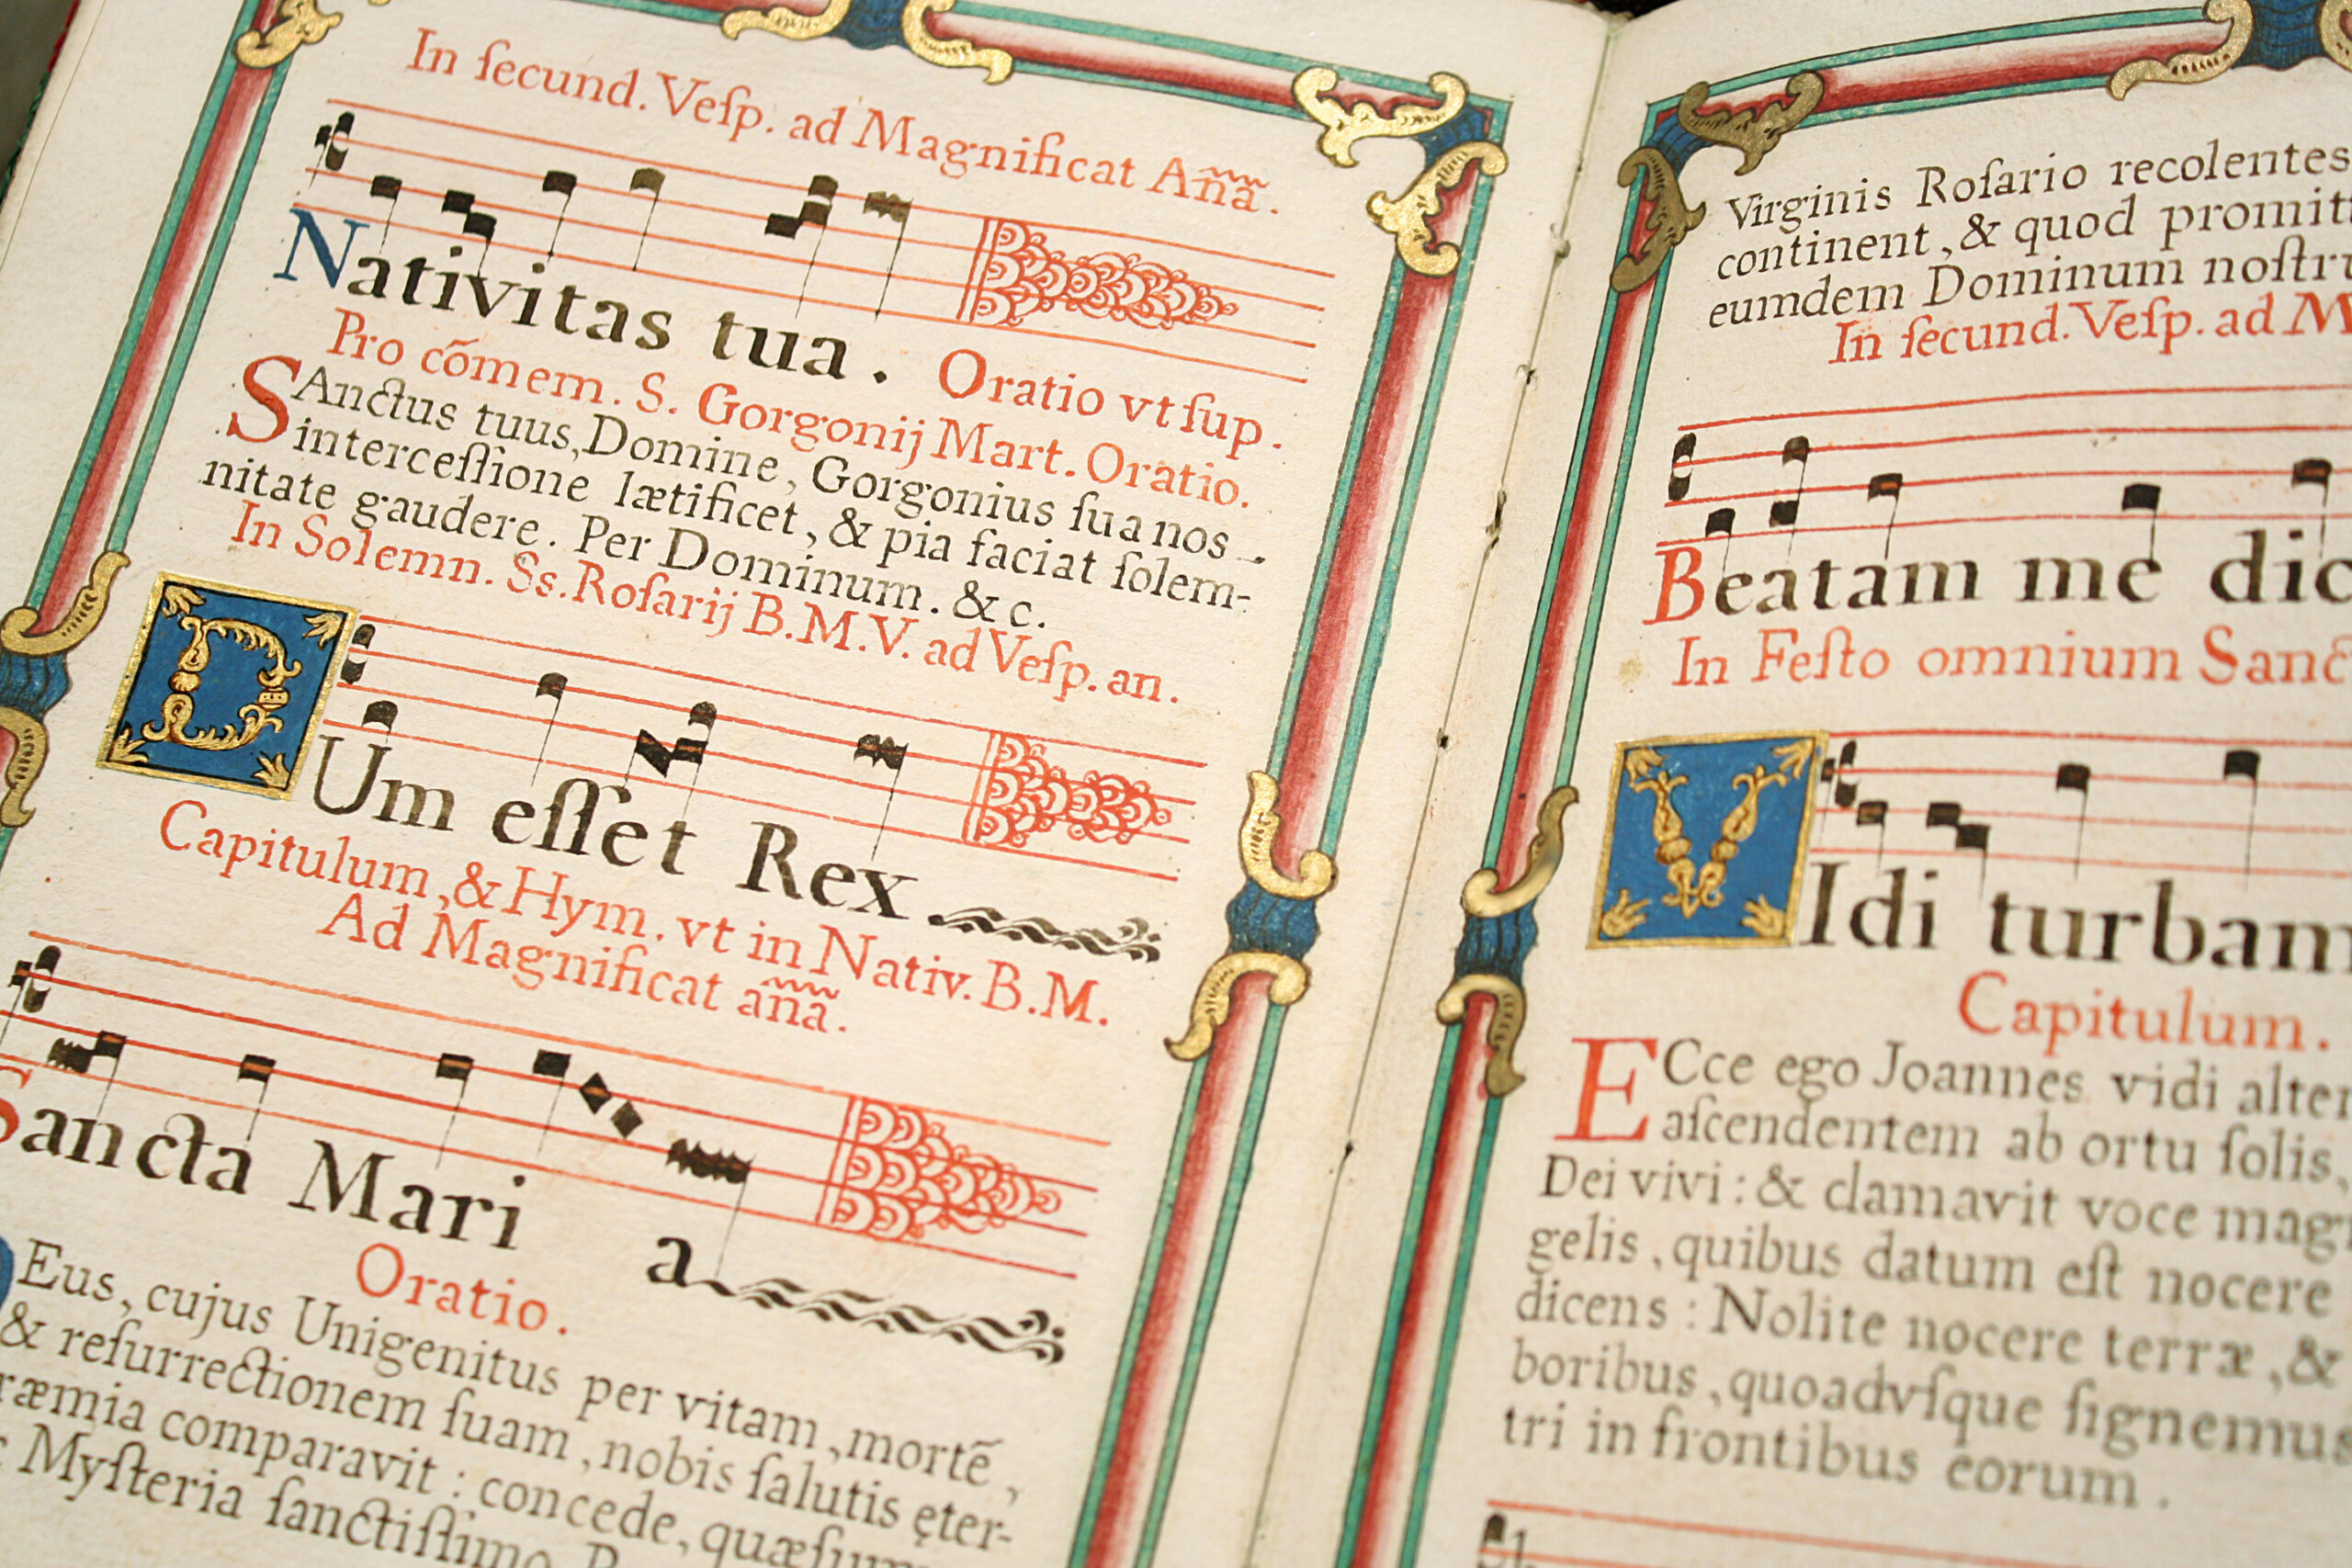 In ſecund. Veſp. ad Magnificat Añã.
Nativitas tua. Oratio vt ſup.
Pro cõmem. S. Gorgonij Mart. Oratio.
SAnctus tuus, Domine, Gorgonius ſua nos
interceſſione lætificet, & pia faciat ſolem-
nitate gaudere. Per Dominum. &c.
In Solemn. Ss. Roſarij B.M.V. ad Veſp. an.
DUm eſſet Rex
Capitulum, & Hym. vt in Nativ. B.M.
Ad Magnificat añã.
Sancta Mari a
Oratio.
Eus, cujus Unigenitus per vitam, mortẽ,
& reſurrectionem ſuam, nobis ſalutis ęter-
ræmia comparavit: concede, quæſum
Myſteria ſanctiſſimo
Virginis Roſario recolentes
continent, & quod promitt
eumdem Dominum noſtru
In ſecund. Veſp. ad M
Beatam me dic
In Feſto omnium Sanct
VIdi turbam
Capitulum.
ECce ego Joannes vidi alter
aſcendentem ab ortu ſolis,
Dei vivi: & clamavit voce mag
gelis, quibus datum eſt nocere
dicens: Nolite nocere terræ, &
boribus, quoadvſque ſignemus
tri in frontibus eorum.